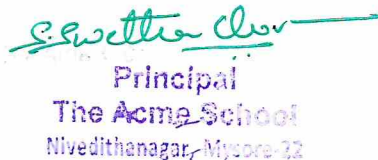 Principal
The Acme School
Nivedithanagar, Mysore-22